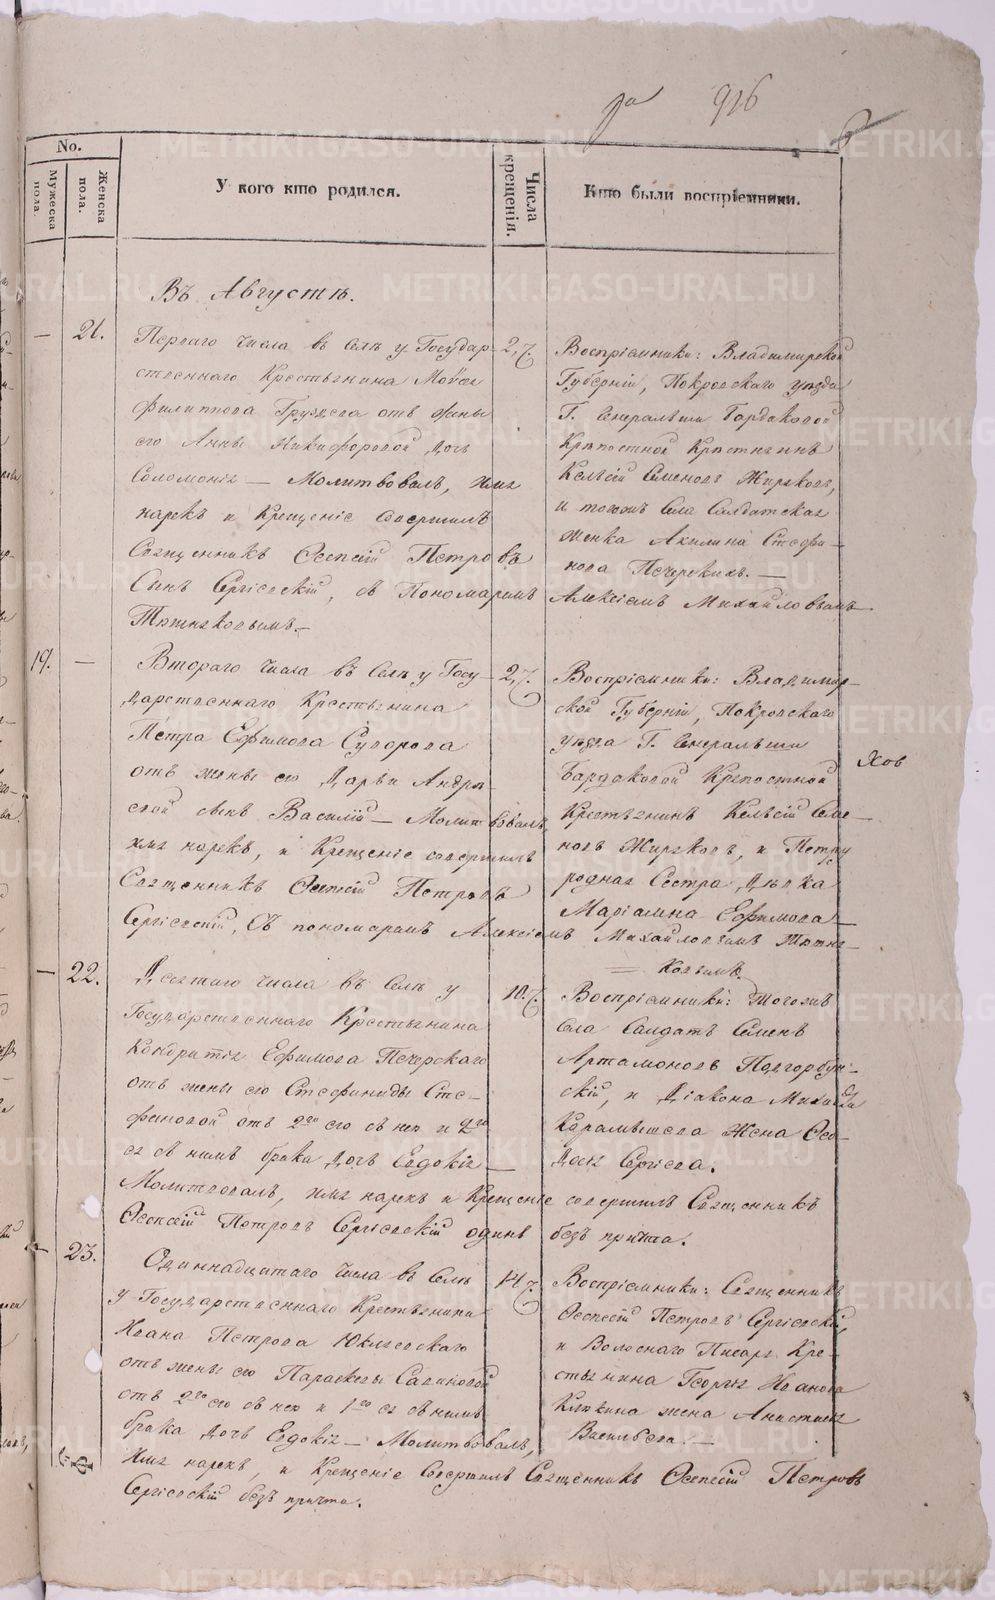 926
No.
Мужеска пола.
Женска пола.
У кого кто родился.
Числа крещенія.
Кто были воспріемники.
Въ Августѣ.
21.
Перваго числа въ Селѣ у Государ-
ственнаго Крестьянина Моѵсея
Филиппова Груздева отъ жены
его Анны Никифоровой дочь
Соломонія — Молитвовалъ, имя
нарекъ и Крещеніе совершилъ
Священникъ Евсевій Петровъ
Сынъ Сергіевскій, съ Пономаремъ Алексіемъ Михайловымъ
Тютняковымъ. —
2.
Воспріемники: Владимирской
Губерніи, Покровскаго уѣзда
Г. Генеральши Бардаковой
Крѣпостной Крестьянинъ
Семеновъ Жирновъ,
и тогожъ Села Солдатская
женка Акилина Стефа-
нова Печерскихъ. —
19.
Втораго числа въ Селѣ у Госу-
дарственнаго Крестьянина
Петра Ефимова Суворова
отъ жены его Дарьи Андре-
евой сынъ Василій — Молитвовалъ,
имя нарекъ, и Крещеніе совершилъ
Священникъ Евсевій Петровъ
Сергіевскій, Съ пономаремъ Алексіемъ Михайловымъ Тютня-
ковымъ.
2.
Воспріемники: Владимир-
ской Губерніи, Покровскаго
уѣзда Г. Генеральши
Бардаковой Крепостной
Крестьянинъ Семе-
новъ Жирновъ, и Петру
родная Сестра Дѣвка
Маріамна Ефимова
22.
Десятаго числа въ Селѣ у
Государственнаго Крестьянина
Кондратія Ефимова Печерскаго
отъ жены его Стефаниды Сте-
фановой отъ 2го его съ нею и 2го
ея съ нимъ брака дочь Евдокія —
Молитвовалъ, имя нарекъ и Крещеніе совершилъ Священникъ
Евсевій Петровъ Сергіевскій одинъ безъ причта.
10.
Воспріемники: тогожъ
села Солдатъ Семенъ
Артамоновъ Подгорбун-
скій, и Діакона Михаила
Карамышева Жена Ѳео-
досья Сергіева.
23.
Одиннадцатаго числа въ Селѣ
у Государственнаго Крестьянина
Ивана Петрова
отъ жены его Параскевы Савиновой
отъ 2го его съ нею и 1го ея съ нимъ
брака дочь Евдокія — Молитвовалъ,
имя нарекъ, и Крещеніе Совершилъ Священникъ Евсевій Петровъ
Сергіевскій безъ причта.
14.
Воспріемники: Священникъ
Евсевій Петровъ Сергіевскій,
и Волоснаго Писаря Кре-
стьянина Георгія Иванова
Клюкина жена Анастасія
Васильева. —
METRIKI.GASO-URAL.RU